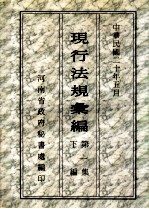 中華民國二十年五月
現行法規彙編
第一集
下編
河南省政府秘書處編印